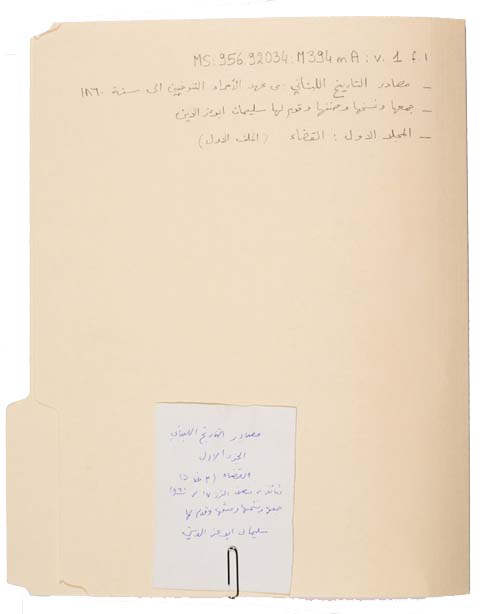 MS:956.92034:M394mA:v.1 f.1
– مصادر التاريخ اللبناني من عهد الأمراء التنوخيين الى سنة ١٨٦٠
– جمعها ونسقها وصنفها وقدم لها سليمان ابو عز الدين
– المجلد الاول : القضاء (الملف الاول)
مصادر التاريخ اللبناني
الجزء الاول
القضاء
وثائق من القرن ١٧ ١٨٦٠
جمعها ونسقها وصنفها وقدم لها
سليمان ابو عز الدين